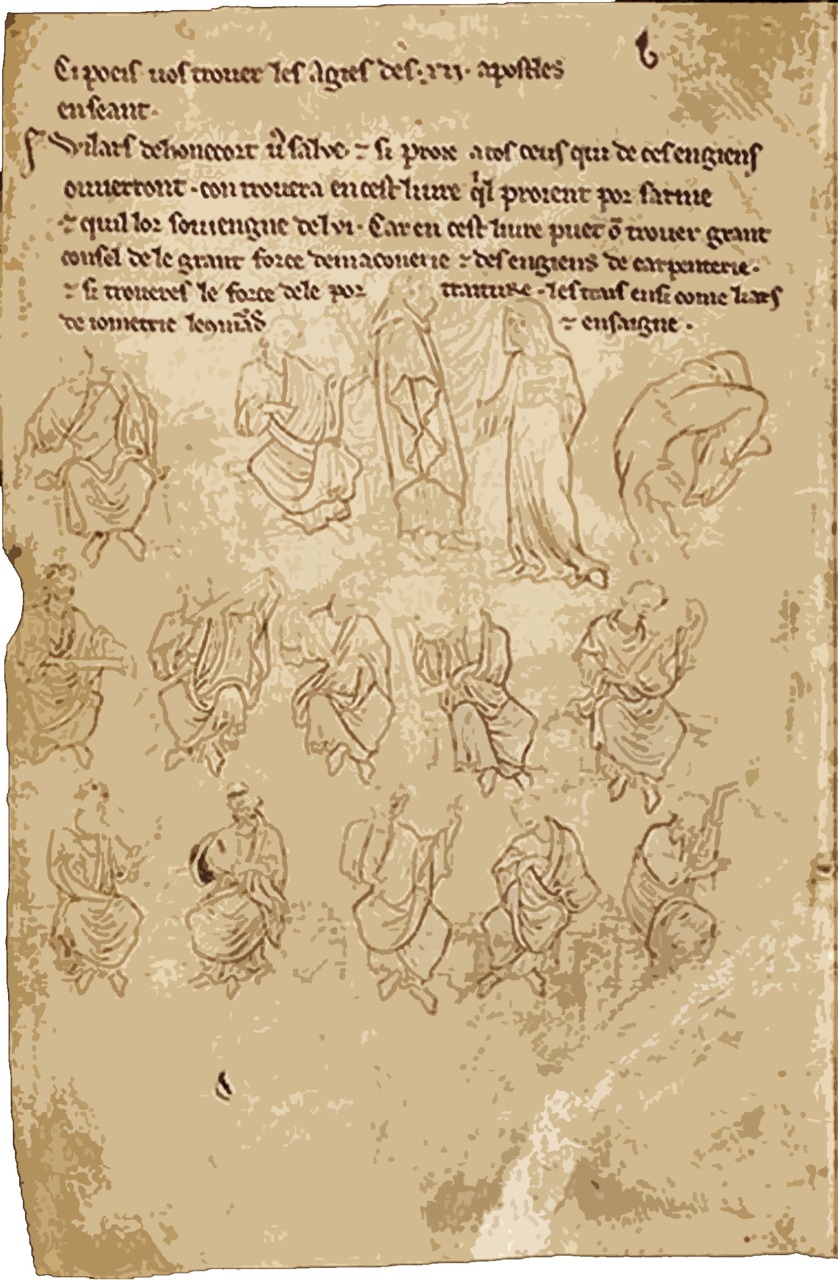 Ci poeis uos trouer les agies des .xii. apostles
en seant.
Wilars dehonecort u⁹ salue. ⁊ si proie a tos ceus qui de ces engiens
ouuerront. con trouera en cest liure q'l proient por sarme
⁊ quil lor souiengne de lui. Car en cest liure puet ō trouer grant
consel de le grant force de maconerie ⁊ des engiens de carpenterie.
⁊ si troueres le force dele por traiture. les trais ensi come li ars
de iometrie ⁊ ensaigne.